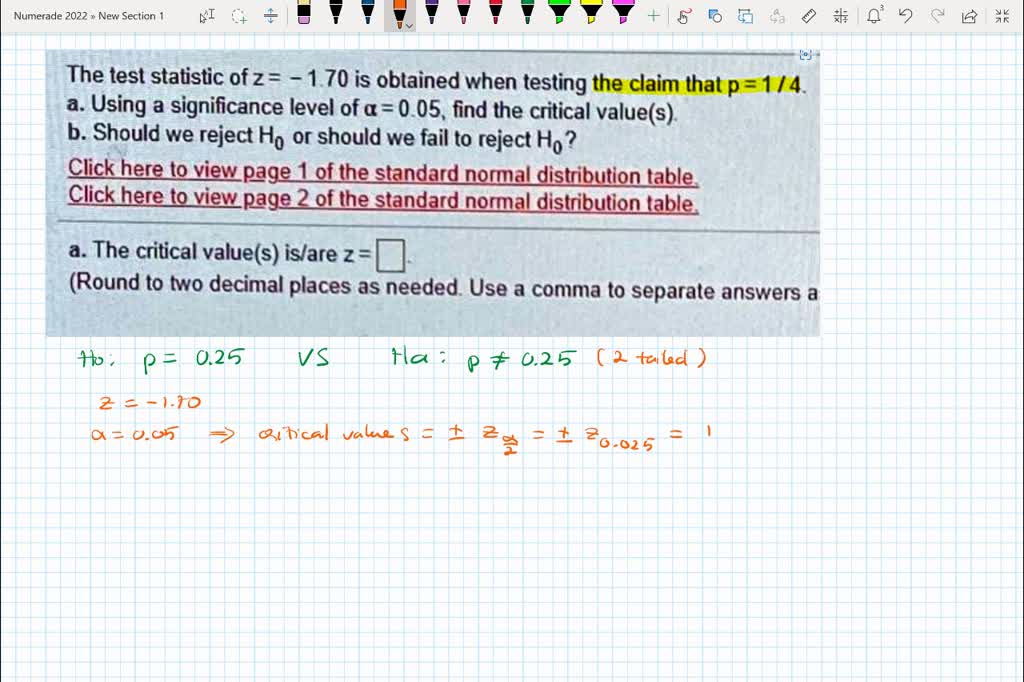 Numerade 2022 » New Section 1
3
The test statistic of z = − 1.70 is obtained when testing the claim that p = 1 / 4.
a. Using a significance level of α = 0.05, find the critical value(s).
b. Should we reject H0 or should we fail to reject H0?
Click here to view page 1 of the standard normal distribution table.
Click here to view page 2 of the standard normal distribution table.
a. The critical value(s) is/are z = .
(Round to two decimal places as needed. Use a comma to separate answers a
Ho: p = 0.25 VS Ha: p ≠ 0.25 (2 tailed)
z = -1.70
α = 0.05 ⇒ critical values = ± z α/2 = ± z 0.025 = 1